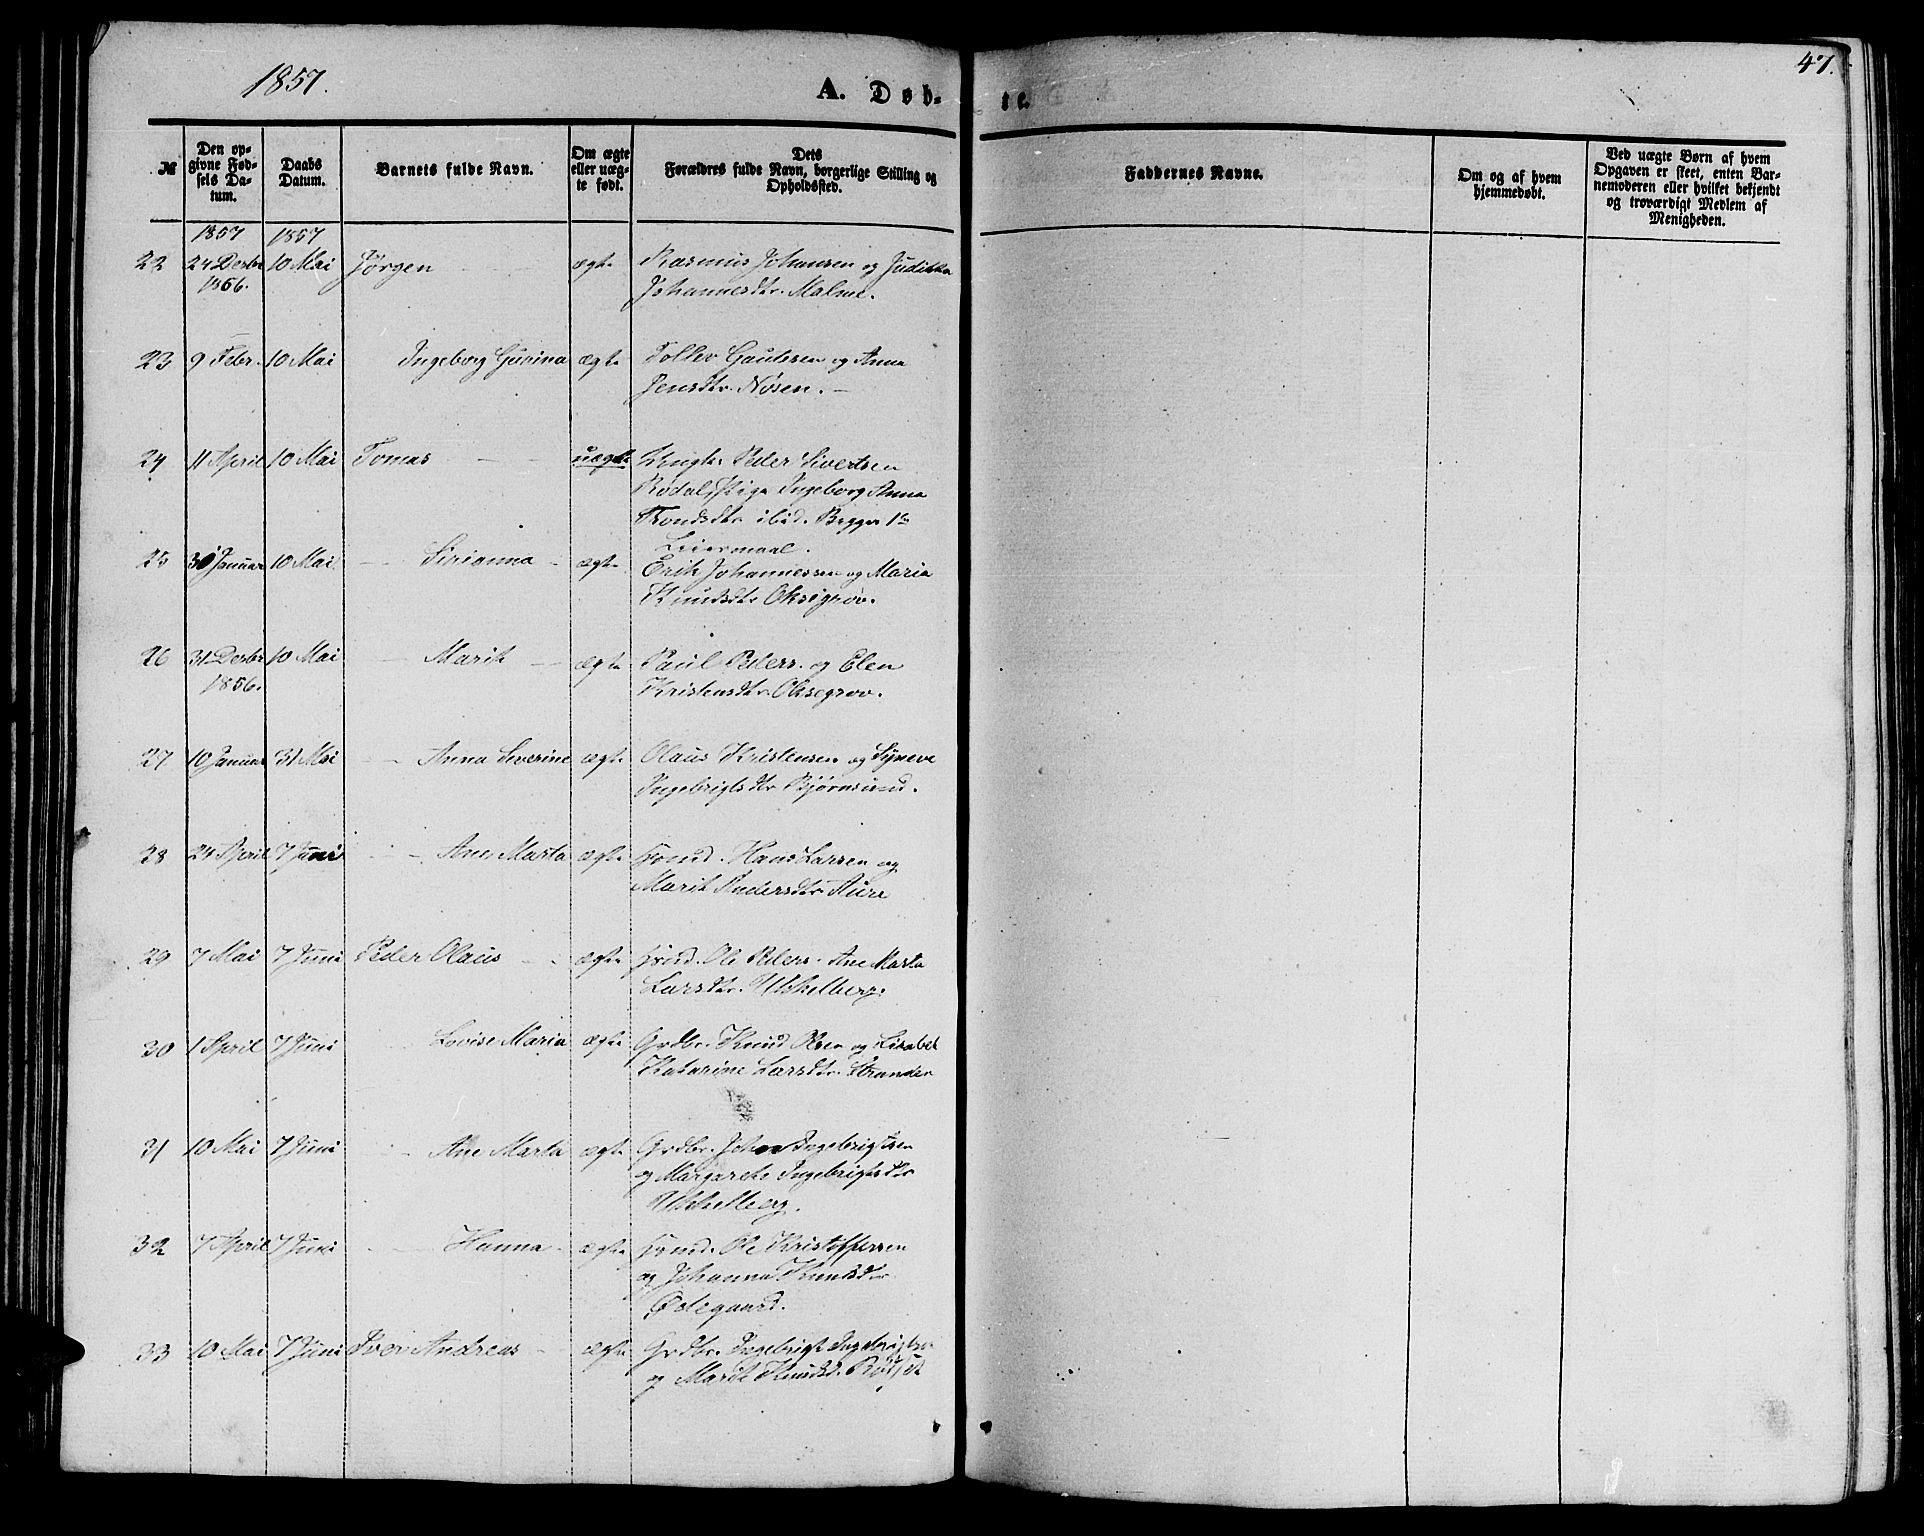 1857.
A. Døb-
te.
47.
№
Den op-
givne Fød-
sels Da-
tum.
Daabs
Datum.
Barnets fulde Navn.
Om ægte
eller uæg-
te født.
Dets
Forældres fulde Navn, borgerlige Stilling og
Opholdssted.
Faddernes Navne.
Om og af hvem
hjemmedøbt.
Ved uægte Børn af hvem
Opgaven er skeet, enten Bar-
nemoderen eller hvilket bekjendt
og troværdigt Medlem af
Menigheden.
1857 1857
22 24 Desbr 10 Mai Jørgen ægte Rasmus Johansen og Judikka
1856. Johannesdtr. Malme.
23 9 Febr. 10 Mai Ingeborg Gurina ægte Tollev Gautesen og Anna
Jensdtr. Nøsen.
24 11 April 10 Mai Tomas uægte Ungk. Peder Sivertsen
Rødal, Pige Ingeborg Anna
Trondsdtr ibid. Begges 1ste
Leiermaal.
25 30 Januar 10 Mai Sirianna ægte Erik Johannessen og Maria
Knudsdtr Oksegrov.
26 31 Desbr 10 Mai Marit ægte Paul Peders. og Elen
1856. Kristensdtr. Oksegrov.
27 10 Januar 31 Mai Anna Severine ægte Olaus Kristensen og Syneve
Ingebrigtsdtr Bjørnsund.
28 24 April 7 Juni Ane Marta ægte Hmd. Hans Larsen og
Marit Pedersdtr Aure
29 7 Mai 7 Juni Peder Olaus ægte Hmd. Ole Peders. Ane Marta
Larsdtr. Mikkelberg.
30 1 April 7 Juni Lovise Maria ægte Grdbr. Knud Olsen og Lisabet
Katarine Larsdtr. Stranden
31 10 Mai 7 Juni Ane Marta ægte Grdbr. Johan Ingebrigtsen
og Margarete Ingebrigtsdtr
Mikkelberg.
32 7 April 7 Juni Hanna ægte Hmd. Ole Kristoffersen
og Johanna Knudsdtr
Ødegaard.
33 10 Mai 7 Juni Iver Andreas ægte Grdbr. Ingebrigt Ingebrigtsen
og Marit Knudsd.